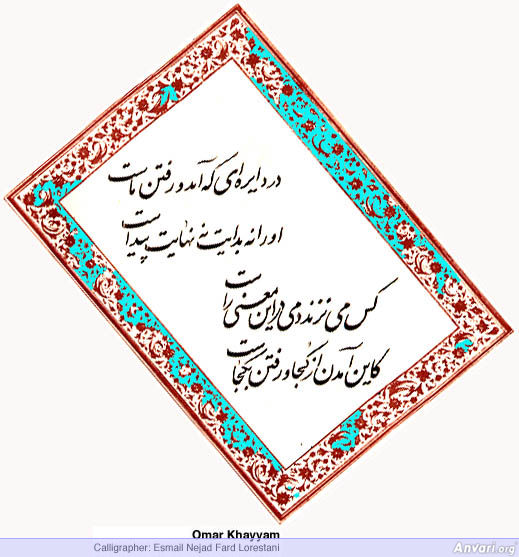 در دایره‌ای که آمد و رفتن ماست
او را نه بدایت نه نهایت پیداست
کس می نزند دمی در این معنی راست
کاین آمدن از کجا و رفتن بکجاست
Omar Khayyam
Calligrapher: Esmail Nejad Fard Lorestani
Anvari.org